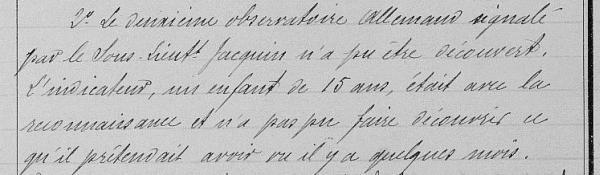 2° Le deuxième observatoire Allemand signalé
par le Sous-Lieutt Jacquin n'a pu être découvert.
L'indicateur, un enfant de 15 ans, était avec la
reconnaissance et n'a pas pu faire découvrir ce
qu'il prétendait avoir vu il y a quelques mois.